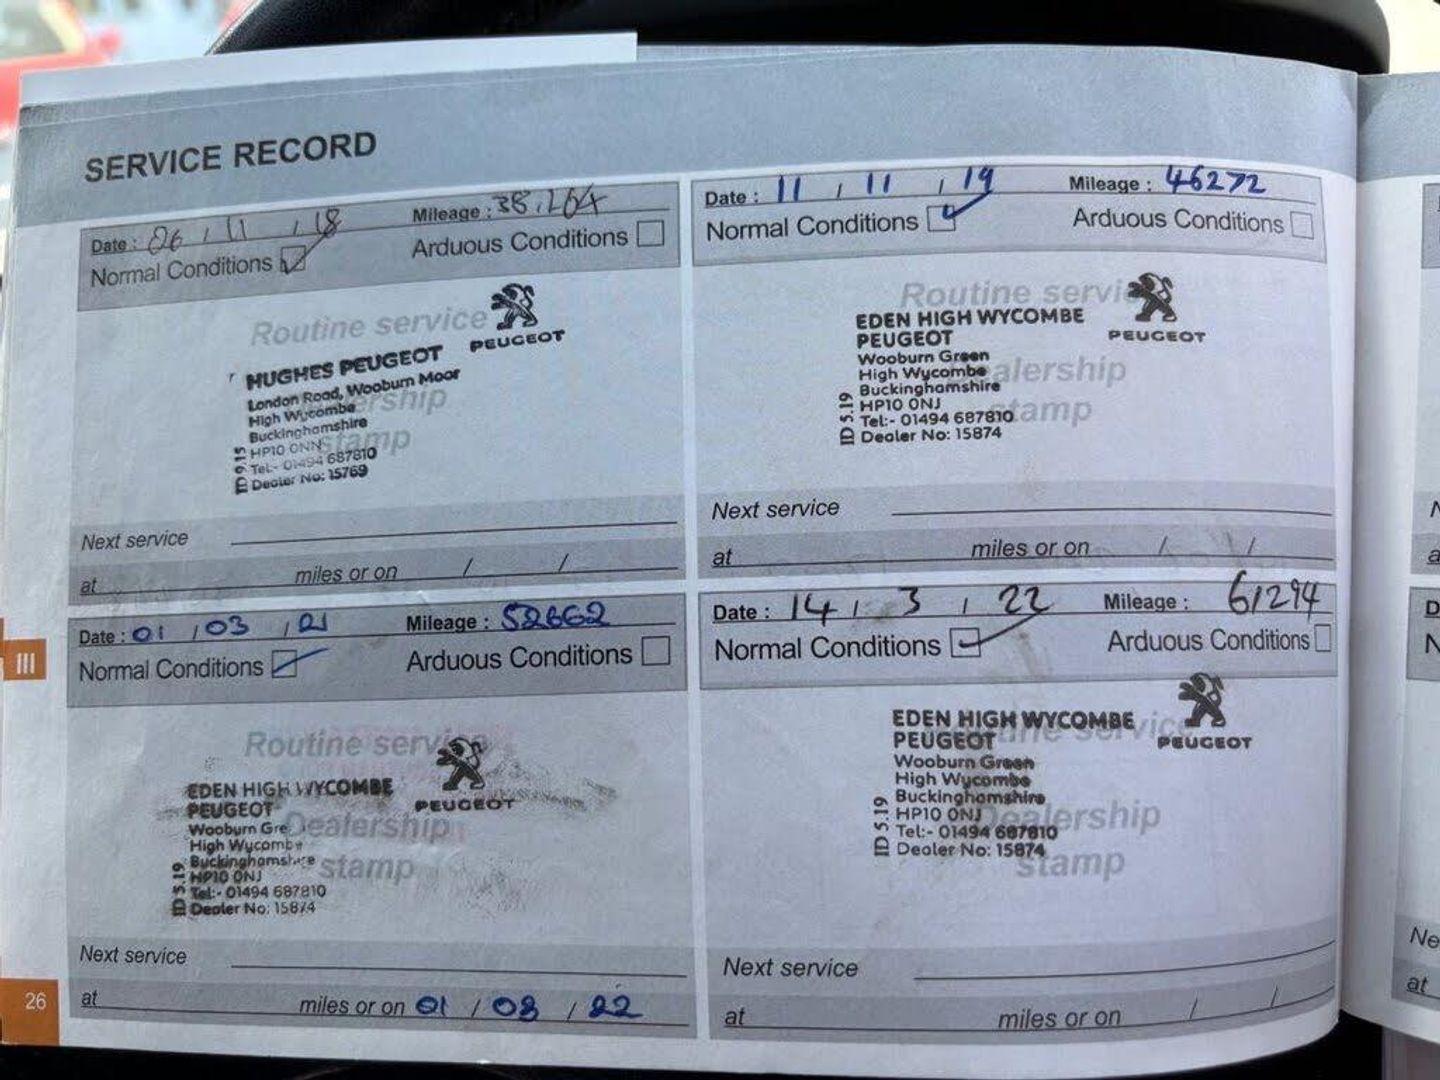 SERVICE RECORD
Date : 06 / 11 / 18 Mileage : 38,264
Normal Conditions Arduous Conditions
Routine service
PEUGEOT
HUGHES PEUGEOT
London Road, Wooburn Moor
High Wycombe
Buckinghamshire
HP10 0NN
Tel:- 01494 687810
Dealer No: 15769
ID 9.15
Dealership
stamp
Next service
at miles or on / /
Date : 11 / 11 / 19 Mileage : 46272
Normal Conditions Arduous Conditions
Routine service
PEUGEOT
EDEN HIGH WYCOMBE
PEUGEOT
Wooburn Green
High Wycombe
Buckinghamshire
HP10 0NJ
Tel:- 01494 687810
Dealer No: 15874
ID 5.19
Dealership
stamp
Next service
at miles or on / /
Date : 01 / 03 / 21 Mileage : 52662
Normal Conditions Arduous Conditions
Routine service
PEUGEOT
EDEN HIGH WYCOMBE
PEUGEOT
Wooburn Gre
High Wycombe
Buckinghamshire
HP10 0NJ
Tel:- 01494 687810
Dealer No: 15874
ID 5.19
Dealership
stamp
Next service
at miles or on 01 / 03 / 22
Date : 14 / 3 / 22 Mileage : 61294
Normal Conditions Arduous Conditions
Routine service
PEUGEOT
EDEN HIGH WYCOMBE
PEUGEOT
Wooburn Green
High Wycombe
Buckinghamshire
HP10 0NJ
Tel:- 01494 687810
Dealer No: 15874
ID 5.19
Dealership
stamp
Next service
at miles or on / /
III
26
Ne
at